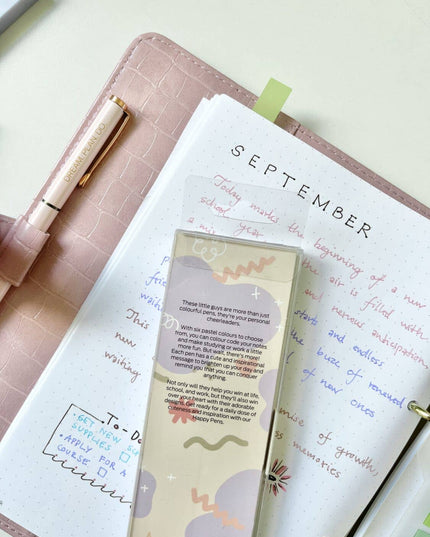 DREAM PLAN DO
SEPTEMBER
Today marks the beginning of a new
school year
the air is filled with
and nervous anticipation
starts and endless
the buzz of renewed
of new ones
promise of growth,
memories
This
new
waiting
To-Do
GET NEW
SUPPLIES
APPLY FOR A
COURSE
These little guys are more than just
colourful pens, they're your personal
cheerleaders.
With six pastel colours to choose
from, you can colour code your notes
and make studying or work a little
more fun. But wait, there's more!
Each pen has a cute and inspirational
message to brighten up your day and
remind you that you can conquer
anything.
Not only will they help you win at life,
school, and work, but they'll also win
over your heart with their adorable
designs. Get ready for a daily dose of
cuteness and inspiration with our
Happy Pens.